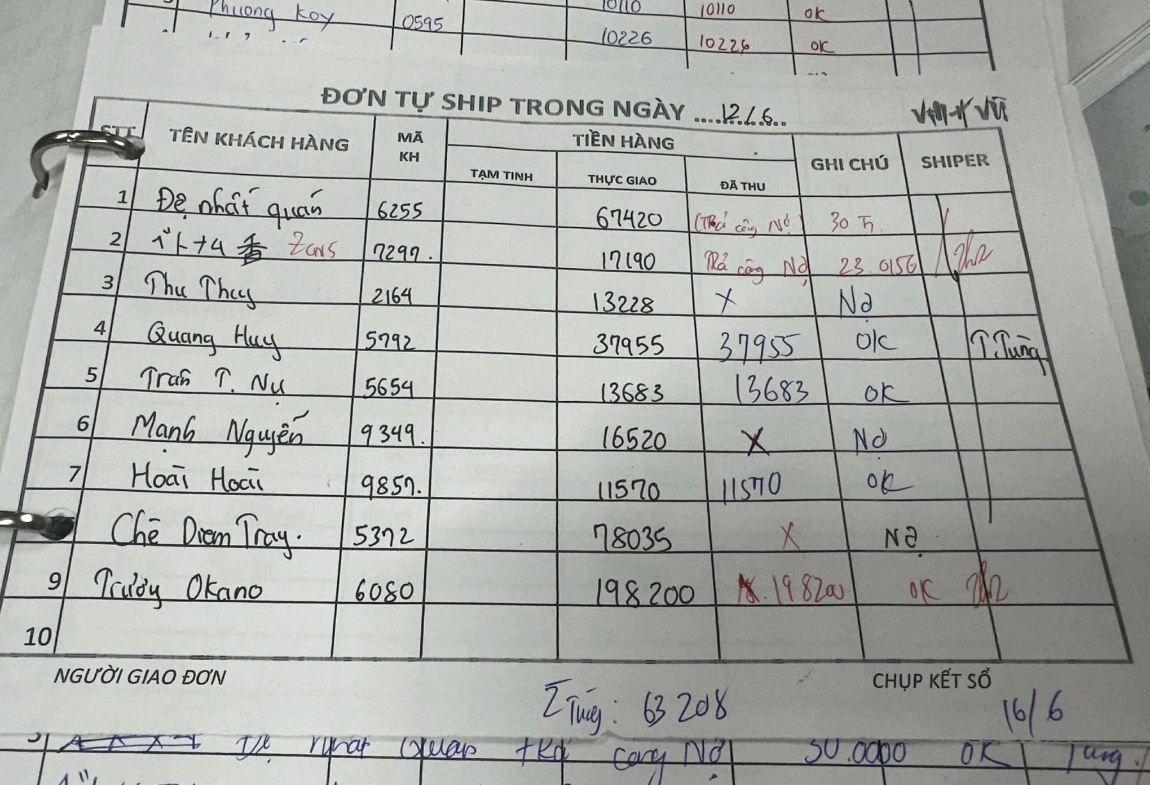 Phuong Koy 0595 10110 10110 OK
10226 10226 OK
ĐƠN TỰ SHIP TRONG NGÀY ....12/6..
STT TÊN KHÁCH HÀNG MÃ KH TIỀN HÀNG GHI CHÚ SHIPER
TẠM TINH THỰC GIAO ĐÃ THU
1 Đệ nhất quán 6255 67420 (Trả công Nợ) 30
2 7297. 17190 Trả công Nợ 23.0156
3 Thu Thuy 2164 13228 X Nợ
4 Quang Huy 5792 37955 37955 OK T.Tùng
5 Trần T. Nụ 5654 13683 13683 OK
6 Mạnh Nguyễn 9349. 16520 X Nợ
7 Hoài Hoài 9857. 11570 11570 OK
Chè Diem Tray. 5372 78035 X Nợ
9 Trường Okano 6080 198200 198200 OK
10
NGƯỜI GIAO ĐƠN CHỤP KẾT SỔ
Σ Tùng: 63 208 16/6
nhat Quan trả cong Nợ 30.0000 OK Tung.